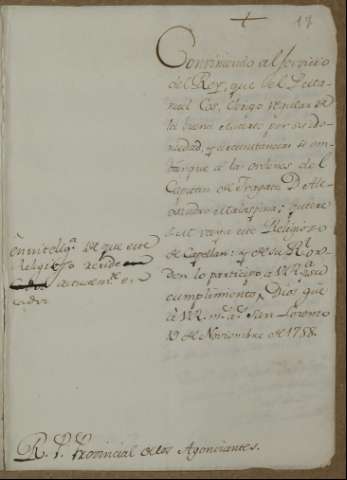 18
Conviniendo al servicio
del Rey, que el Pe. Ra-
fael Cos, Clerigo regular de
la buena muerte por su ydo-
neidad, y circunstancias se em-
barque à las ordenes del
Capitan de Fragata Dn. Ale-
xandro Malaspina; quiere
S.M. vaya este Religioso
de Capellan: y de su Rl. or-
den lo participo à V.R. para su
cumplimiento. Dios gue.
à V.R. ms. as. San Lorenzo
10 de Noviembre de 1788.
en intellga. de que este
Religioso reside
actualmte. en
Cadiz
R. P. Provincial de los Agonizantes.